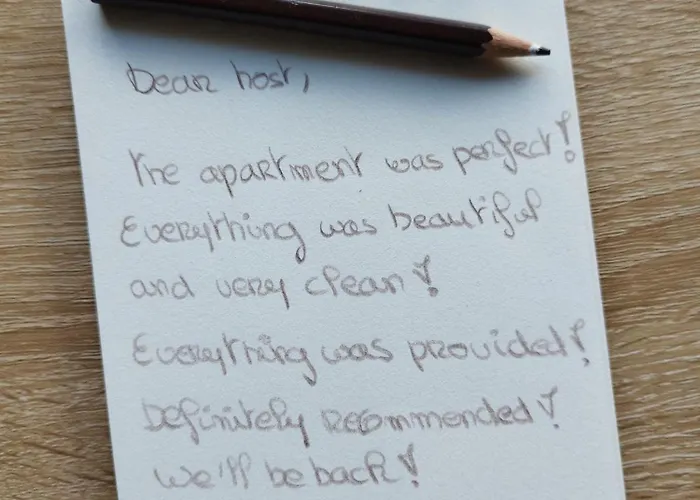 Dear host,
The apartment was perfect!
Everything was beautiful
and very clean!
Everything was provided!
Definitely recommended!
We'll be back!